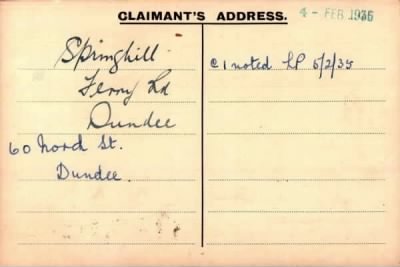 CLAIMANT'S ADDRESS.
4 - FEB 1935
Springhill
Ferry Rd
Dundee
60 North St.
Dundee.
C1 noted LP 5/2/35